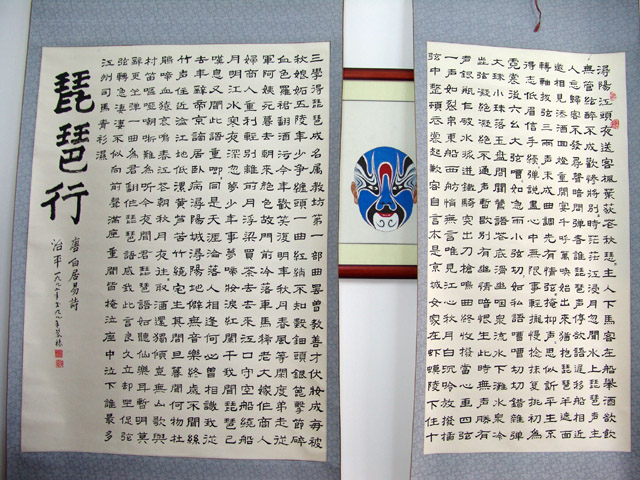 潯陽江頭夜送客楓葉荻花秋瑟瑟主人下馬客在船舉酒欲飲
無管絃醉不成歡慘將別別時茫茫江浸月忽聞水上琵琶聲主
人忘歸客不發尋聲暗問彈者誰琵琶聲停欲語遲移船相近
邀相見添酒回燈重開宴千呼萬喚始出來猶抱琵琶半遮面
轉軸撥弦三兩聲未成曲調先有情弦弦掩抑聲聲思似訴平生不
得志低眉信手續續彈說盡心中無限事輕攏慢撚抹復挑初為
霓裳後六幺大弦嘈嘈如急雨小弦切切如私語嘈嘈切切錯雜彈
大珠小珠落玉盤間關鶯語花底滑幽咽泉流水下灘水泉冷
澀弦凝絕凝絕不通聲暫歇別有幽情暗恨生此時無聲勝有
聲銀瓶乍破水漿迸鐵騎突出刀槍鳴曲終收撥當心畫四弦
一聲如裂帛東船西舫悄無言唯見江心秋月白沉吟放撥插
弦中整頓衣裳起斂容自言本是京城女家在蝦蟆陵下住十
三學得琵琶成名屬教坊第一部曲罷曾教善才伏妝成每被
秋娘妒五陵年少爭纏頭一曲紅綃不知數鈿頭銀篦擊節碎
血色羅裙翻酒污今年歡笑復明年秋月春風等閒度弟走從
軍阿姨死暮去朝來顏色故門前冷落車馬稀老大嫁作商人
婦商人重利輕別離前月浮梁買茶去去來江口守空船繞船
月明江水寒夜深忽夢少年事夢啼妝淚紅闌干我聞琵琶已
嘆息又聞此語重唧唧同是天涯淪落人相逢何必曾相識我從
去年辭帝京謫居臥病潯陽城潯陽地僻無音樂終歲不聞絲
竹聲住近湓江地低濕黃蘆苦竹繞宅生其間旦暮聞何物杜
鵑啼血猿哀鳴春江花朝秋月夜往往取酒還獨傾豈無山歌與
村笛嘔啞嘲哳難為聽今夜聞君琵琶語如聽仙樂耳暫明莫
辭更坐彈一曲為君翻作琵琶行感我此言良久立卻坐促弦
弦轉急淒淒不似向前聲滿座重聞皆掩泣座中泣下誰最多
江州司馬青衫濕
琵琶行
唐白居易詩
治平一九九